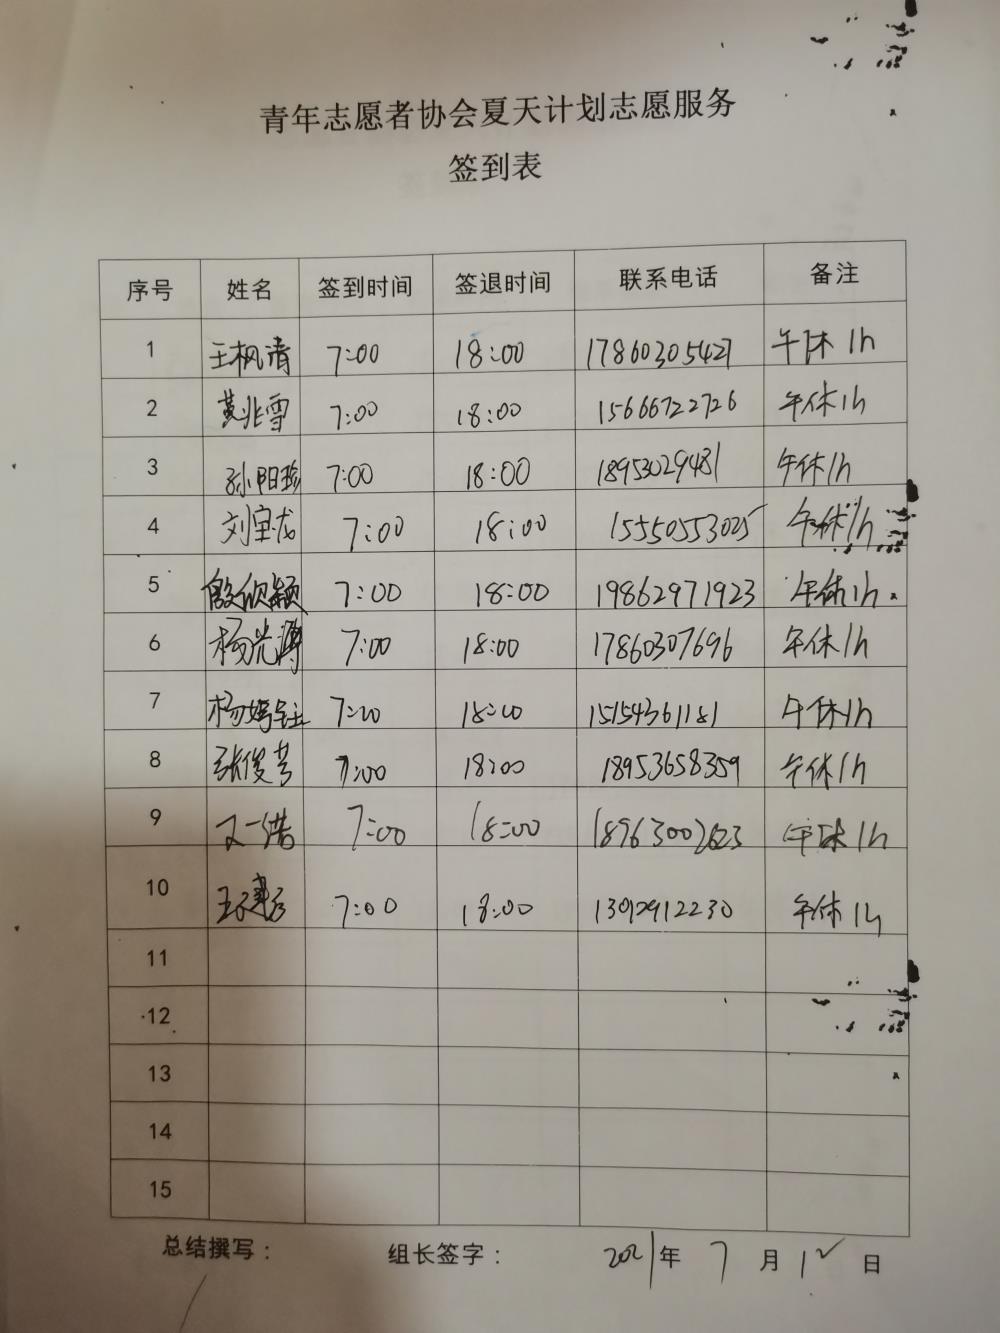 青年志愿者协会夏天计划志愿服务
签到表
序号 姓名 签到时间 签退时间 联系电话 备注
1 王枫清 7:00 18:00 17860305427 午休1h
2 黄兆雪 7:00 18:00 15666722726 午休1h
3 孙阳珍 7:00 18:00 18953029481 午休1h
4 刘宝龙 7:00 18:00 15550553025 午休1h
5 殷欣颖 7:00 18:00 19862971923 午休1h
6 杨光 7:00 18:00 17860307696 午休1h
7 杨嫣钰 7:00 18:00 15154361181 午休1h
8 张俊芳 7:00 18:00 18953658359 午休1h
9 7:00 18:00 18963002623 午休1h
10 7:00 18:00 13012912230 午休1h
11
12
13
14
15
总结撰写： 组长签字： 2021年 7 月 12 日